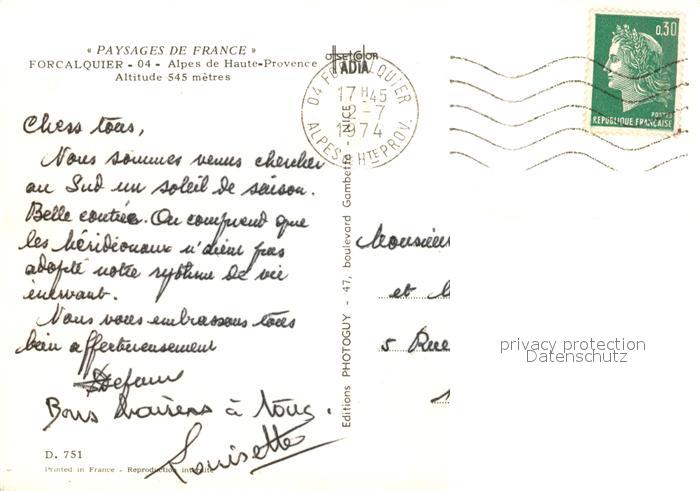 « PAYSAGES DE FRANCE »
FORCALQUIER - 04 - Alpes de Haute-Provence
Altitude 545 mètres
Chers tous,
Nous sommes venus chercher
au Sud un soleil de saison.
Belle contrée. On comprend que
les méridionaux n'aient pas
adopté notre rythme de vie
énervant.
Nous vous embrassons tous
bien affectueusement
Bons baisers à tous.
Louisette
D. 751
Printed in France - Reproduction interdite
offsetcolor
ADIA
Editions PHOTOGUY - 47, boulevard Gambetta - NICE
04 FORCALQUIER
17H45
2-7
1974
ALPES DE HTE PROV.
0,30
POSTES
REPUBLIQUE FRANÇAISE
Monsieur
et
5 Rue
privacy protection
Datenschutz